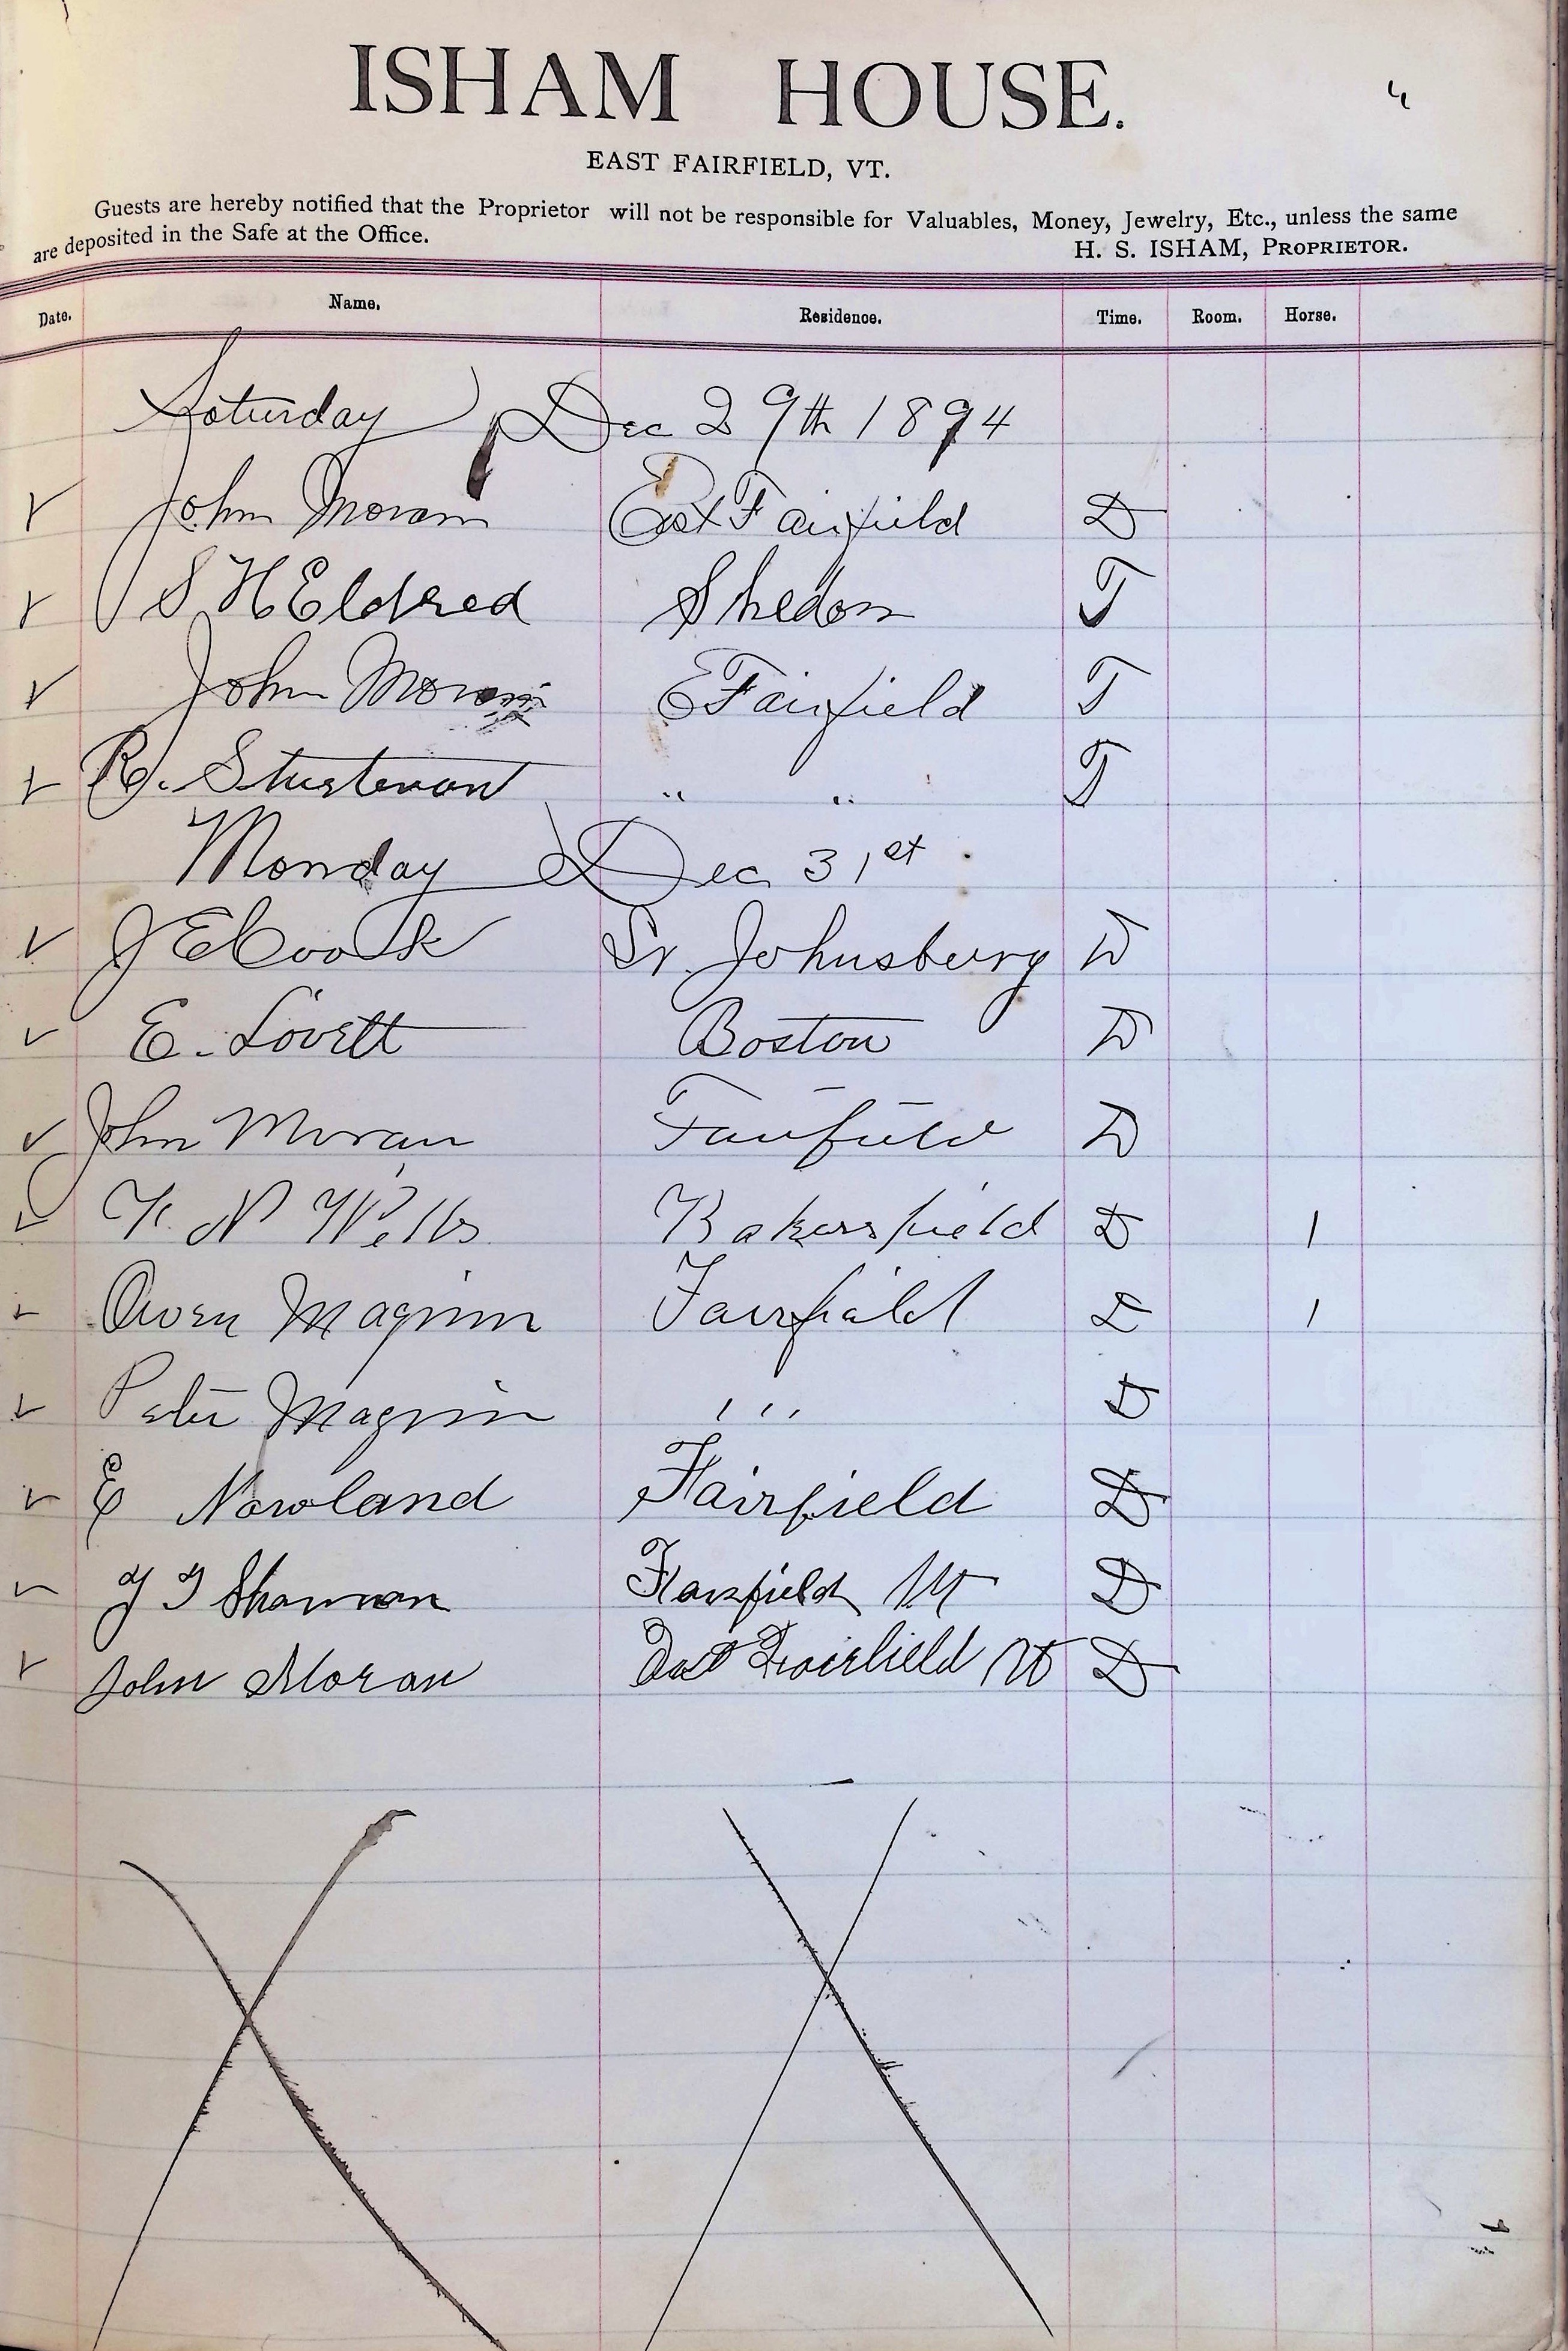 ISHAM HOUSE.
4
EAST FAIRFIELD, VT.
Guests are hereby notified that the Proprietor will not be responsible for Valuables, Money, Jewelry, Etc., unless the same
are deposited in the Safe at the Office.
H. S. ISHAM, PROPRIETOR.
Date. Name. Residence. Time. Room. Horse.
Saturday Dec 29th 1894
John Moran East Fairfield D
S H Eldred Sheldon T
John Moran E Fairfield T
R. Sturtevant " " T
Monday Dec 31st
J E Cook St. Johnsbury D
E. Lovett Boston D
John Moran Fairfield D
N Wells Bakersfield D 1
Owen Maginn Fairfield D 1
Peter Maginn " " D
E Nowland Fairfield D
Shannon Fairfield Vt D
John Moran East Fairfield Vt D